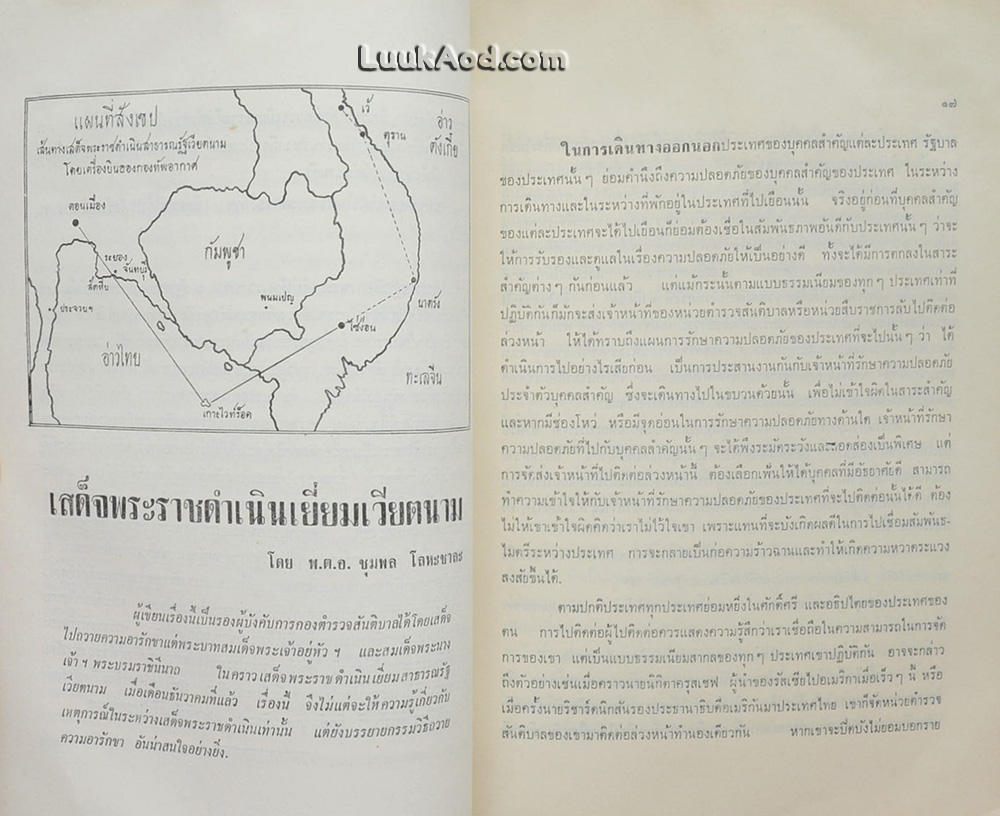 LuukAod.com
แผนที่สังเขป
เส้นทางเสด็จพระราชดำเนินสาธารณรัฐเวียตนาม
โดยเครื่องบินของกองทัพอากาศ
เว้
ตุราน
อ่าว
ตังเกี๋ย
ดอนเมือง
ระยอง
จันทบุรี
สัตหีบ
ประจวบฯ
กัมพูชา
พนมเปญ
นาตรัง
ไซ่ง่อน
อ่าวไทย
ทะเลจีน
เกาะไวท์ร็อค
เสด็จพระราชดำเนินเยี่ยมเวียตนาม
โดย พ.ต.อ. ชุมพล โลหะชาละ
ผู้เขียนเรื่องนี้เป็นรองผู้บังคับการกองตำรวจสันติบาลได้โดยเสด็จ
ไปถวายความอารักขาแด่พระบาทสมเด็จพระเจ้าอยู่หัว ฯ และสมเด็จพระนาง
เจ้า ฯ พระบรมราชินีนาถ ในคราวเสด็จพระราชดำเนินเยี่ยมสาธารณรัฐ
เวียตนาม เมื่อเดือนธันวาคมที่แล้ว เรื่องนี้ จึงไม่แต่จะให้ความรู้เกี่ยวกับ
เหตุการณ์ในระหว่างเสด็จพระราชดำเนินเท่านั้น แต่ยังบรรยายกรรมวิธีถวาย
ความอารักขา อันน่าสนใจอย่างยิ่ง.
๑๗
ในการเดินทางออกนอกประเทศของบุคคลสำคัญแต่ละประเทศ รัฐบาล
ของประเทศนั้น ๆ ย่อมคำนึงถึงความปลอดภัยของบุคคลสำคัญของประเทศ ในระหว่าง
การเดินทางและในระหว่างที่พักอยู่ในประเทศที่ไปเยือนนั้น จริงอยู่ก่อนที่บุคคลสำคัญ
ของแต่ละประเทศจะได้ไปเยือนก็ย่อมต้องเชื่อในสัมพันธภาพอันดีกับประเทศนั้น ๆ ว่าจะ
ให้การรับรองและดูแลในเรื่องความปลอดภัยให้เป็นอย่างดี ทั้งจะได้มีการตกลงในสาระ
สำคัญต่าง ๆ กันก่อนแล้ว แต่แม้กระนั้นตามแบบธรรมเนียมของทุก ๆ ประเทศเท่าที่
ปฏิบัติกันก็มักจะส่งเจ้าหน้าที่ของหน่วยตำรวจสันติบาลหรือหน่วยสืบราชการลับไปติดต่อ
ล่วงหน้า ให้ได้ทราบถึงแผนการรักษาความปลอดภัยของประเทศที่จะไปนั้น ๆ ว่า ได้
ดำเนินการไปอย่างไรเสียก่อน เป็นการประสานงานกันกับเจ้าหน้าที่รักษาความปลอดภัย
ประจำตัวบุคคลสำคัญ ซึ่งจะเดินทางไปในขบวนด้วยนั้น เพื่อไม่เข้าใจผิดในสาระสำคัญ
และหากมีช่องโหว่ หรือมีจุดอ่อนในการรักษาความปลอดภัยทางด้านใด เจ้าหน้าที่รักษา
ความปลอดภัยที่ไปกับบุคคลสำคัญนั้น ๆ จะได้พึงระมัดระวังและสอดส่องเป็นพิเศษ แต่
การจัดส่งเจ้าหน้าที่ไปติดต่อล่วงหน้านี้ ต้องเลือกเฟ้นให้ได้บุคคลที่มีอัธยาศัยดี สามารถ
ทำความเข้าใจให้กับเจ้าหน้าที่รักษาความปลอดภัยของประเทศที่จะไปติดต่อนั้นได้ดี ต้อง
ไม่ให้เขาเข้าใจผิดคิดว่าเราไม่ไว้ใจเขา เพราะแทนที่จะบังเกิดผลดีในการไปเชื่อมสัมพันธ-
ไมตรีระหว่างประเทศ การจะกลายเป็นก่อความร้าวฉานและทำให้เกิดความหวาดระแวง
สงสัยขึ้นได้.
ตามปกติประเทศทุกประเทศย่อมหยิ่งในศักดิ์ศรี และอธิปไตยของประเทศของ
ตน การไปติดต่อผู้ไปติดต่อควรแสดงความรู้สึกว่าเราเชื่อถือในความสามารถในการจัด
การของเขา แต่เป็นแบบธรรมเนียมสากลของทุก ๆ ประเทศเขาปฏิบัติกัน อาจจะกล่าว
ถึงตัวอย่างเช่นเมื่อคราวนายนิกิตาครุสเชฟ ผู้นำของรัสเซียไปอเมริกาเมื่อเร็ว ๆ นี้ หรือ
เมื่อครั้งนายริชาร์ดนิกสันรองประธานาธิบดีอเมริกันมาประเทศไทย เขาก็จัดหน่วยตำรวจ
สันติบาลของเขามาติดต่อล่วงหน้าทำนองเดียวกัน หากเขาจะปิดบังไม่ยอมบอกราย